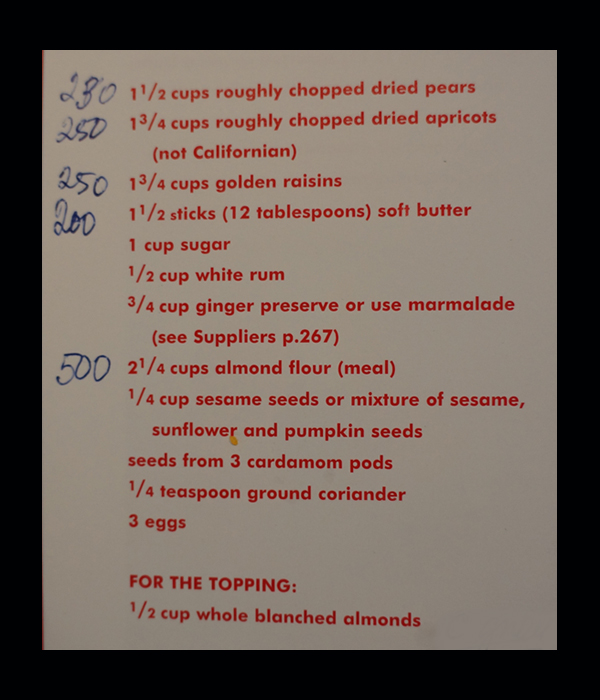 230 1 1/2 cups roughly chopped dried pears
250 1 3/4 cups roughly chopped dried apricots
(not Californian)
250 1 3/4 cups golden raisins
200 1 1/2 sticks (12 tablespoons) soft butter
1 cup sugar
1/2 cup white rum
3/4 cup ginger preserve or use marmalade
(see Suppliers p.267)
500 2 1/4 cups almond flour (meal)
1/4 cup sesame seeds or mixture of sesame,
sunflower and pumpkin seeds
seeds from 3 cardamom pods
1/4 teaspoon ground coriander
3 eggs
FOR THE TOPPING:
1/2 cup whole blanched almonds